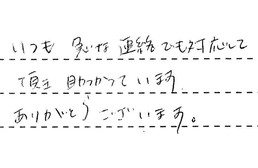 いつも 急な連絡でも対応して
頂き 助かっています。
ありがとうございます。